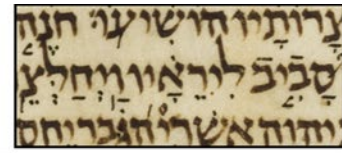 צרותיו הושיעו׃ חנה
סביב ליראיו ויחלצ
יהוה אשרי הגבר יחס